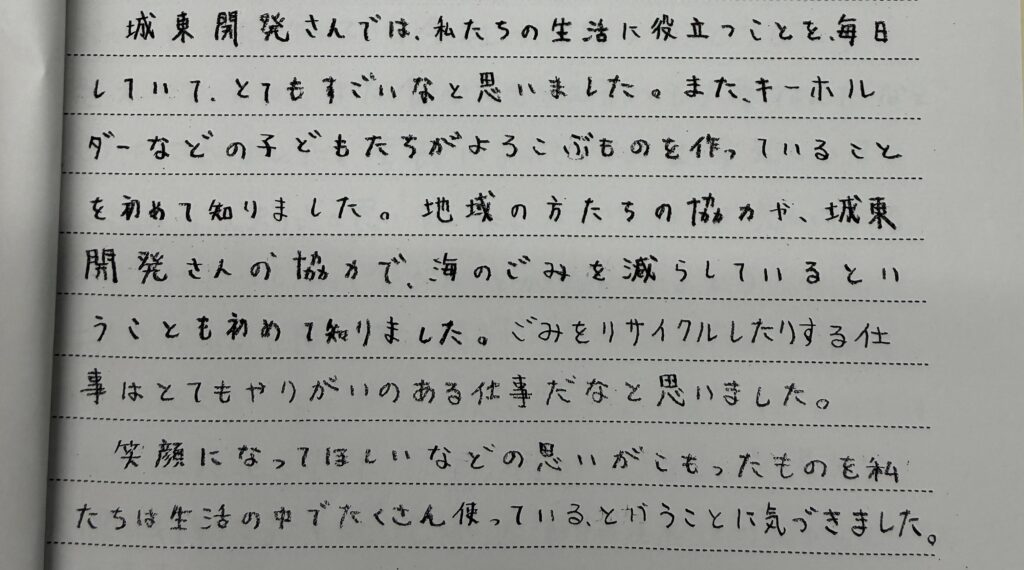 城東開発さんでは、私たちの生活に役立つことを、毎日
していて、とてもすごいなと思いました。また、キーホル
ダーなどの子どもたちがよろこぶものを作っていること
を初めて知りました。地域の方たちの協力や、城東
開発さんの協力で、海のごみを減らしているとい
うことも初めて知りました。ごみをリサイクルしたりする仕
事はとてもやりがいのある仕事だなと思いました。
笑顔になってほしいなどの思いがこもったものを私
たちは生活の中でたくさん使っている、とがうことに気づきました。